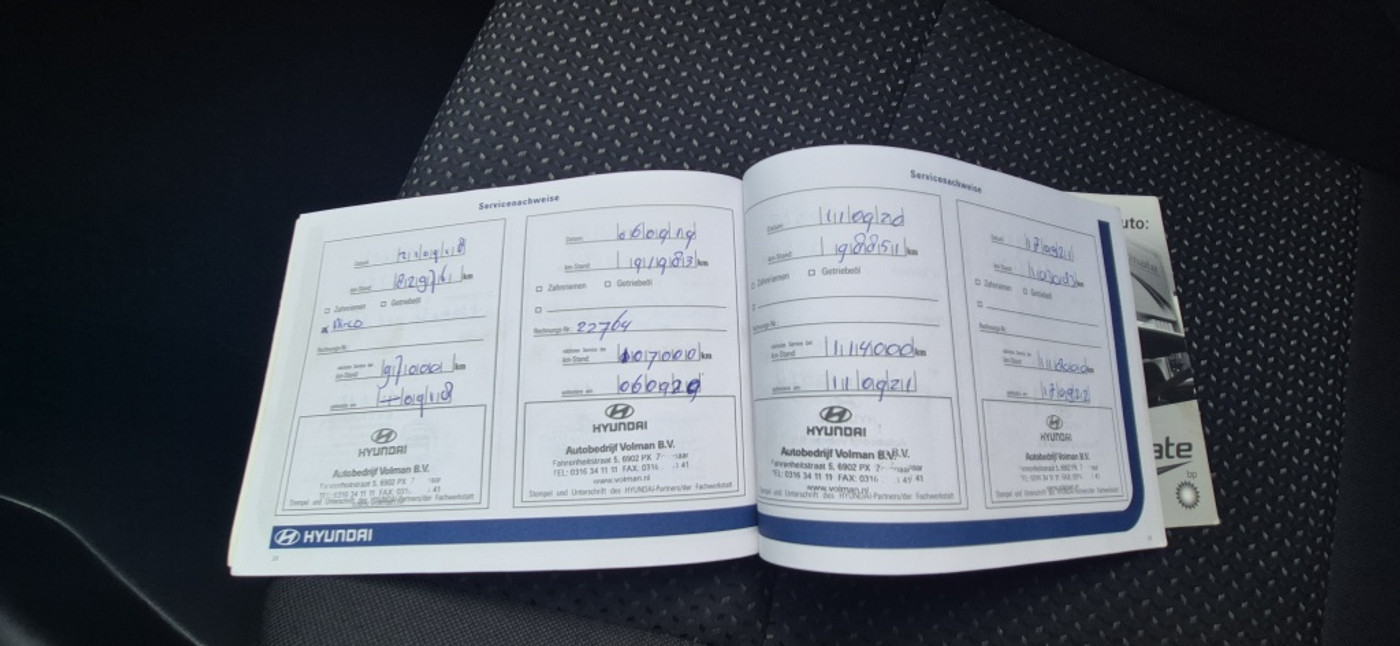 Servicenachweise
Datum
km-Stand 82976 km
Zahnriemen Getriebeöl
Airco
Rechnungs-Nr.
nächster Service bei
km-Stand 97000 km
HYUNDAI
Autobedrijf Volman B.V.
Fahrenheitstraat 5, 6902 PX
TEL: 0316 34 11 11 FAX: 031
Stempel und Unterschrift des HYUNDAI-Partners/der Fachwerkstatt
Datum 060919
km-Stand 91983 km
Zahnriemen Getriebeöl
Rechnungs-Nr. 22764
nächster Service bei
km-Stand 107000 km
060920
HYUNDAI
Autobedrijf Volman B.V.
Fahrenheitstraat 5, 6902 PX
TEL: 0316 34 11 11 FAX: 0316 41
www.volman.nl
Stempel und Unterschrift des HYUNDAI-Partners/der Fachwerkstatt
HYUNDAI
Servicenachweise
Datum 110920
km-Stand 98851 km
Zahnriemen Getriebeöl
Rechnungs-Nr.
nächster Service bei
km-Stand 114000 km
110921
HYUNDAI
Autobedrijf Volman B.V.
Fahrenheitstraat 5, 6902 PX
TEL: 0316 34 11 11 FAX: 0316 41
www.volman.nl
Stempel und Unterschrift des HYUNDAI-Partners/der Fachwerkstatt
Datum 170921
km-Stand km
Zahnriemen Getriebeöl
Rechnungs-Nr.
nächster Service bei
km-Stand km
170922
HYUNDAI
Autobedrijf Volman B.V.
Stempel und Unterschrift des HYUNDAI-Partners/der Fachwerkstatt
uto:
ate
bp